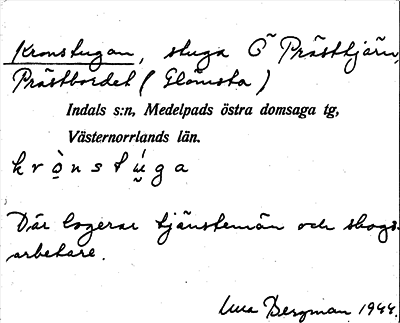 Kronstugan, stuga Ö Prästtjärn,
Prästbordet (Glömsta)
Indals s:n, Medelpads östra domsaga tg,
Västernorrlands län.
krò̱nstú̬ga
Där logerar tjänstemän och skogs-
arbetare.
Bergman 1944.